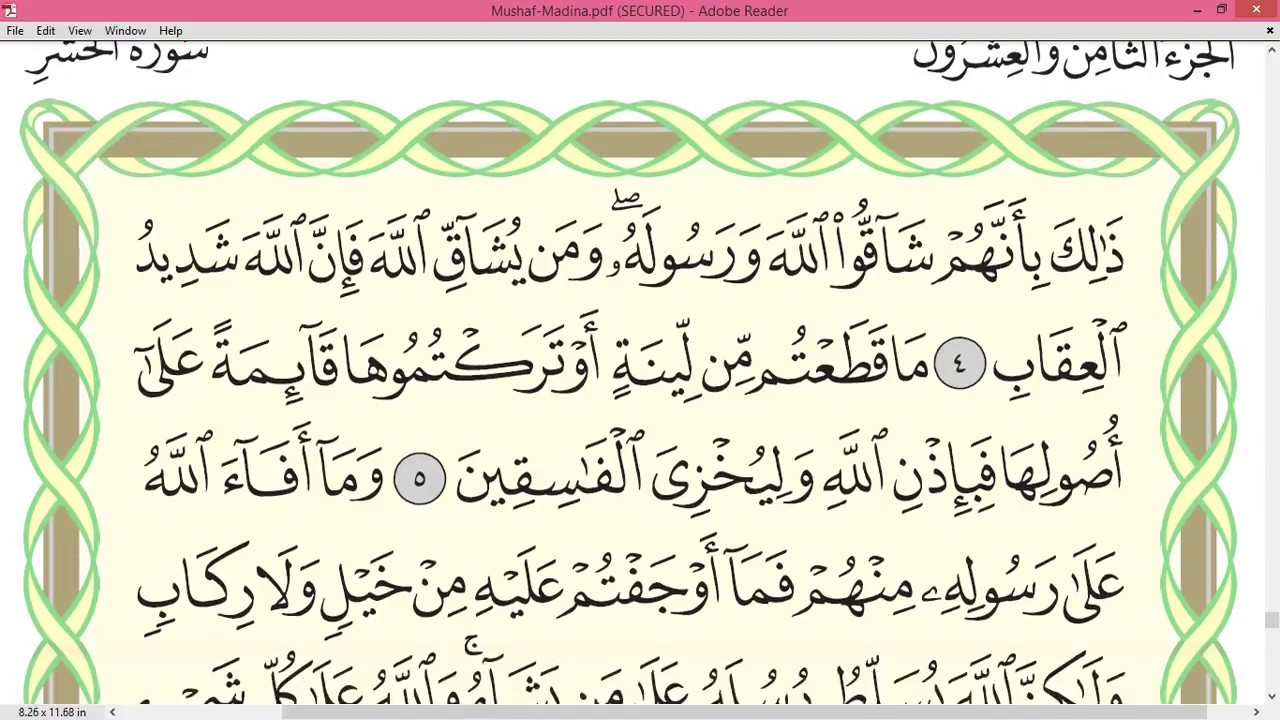 Mushaf-Madina.pdf (SECURED) - Adobe Reader
File Edit View Window Help
الجزء الثامن والعشرون سورة الحشر
ذَٰلِكَ بِأَنَّهُمْ شَآقُّوا۟ ٱللَّهَ وَرَسُولَهُۥ ۖ وَمَن يُشَآقِّ ٱللَّهَ فَإِنَّ ٱللَّهَ شَدِيدُ
ٱلْعِقَابِ ٤ مَا قَطَعْتُم مِّن لِّينَةٍ أَوْ تَرَكْتُمُوهَا قَآئِمَةً عَلَىٰٓ
أُصُولِهَا فَبِإِذْنِ ٱللَّهِ وَلِيُخْزِىَ ٱلْفَٰسِقِينَ ٥ وَمَآ أَفَآءَ ٱللَّهُ
عَلَىٰ رَسُولِهِۦ مِنْهُمْ فَمَآ أَوْجَفْتُمْ عَلَيْهِ مِنْ خَيْلٍ وَلَا رِكَابٍ
وَلَٰكِنَّ ٱللَّهَ يُسَلِّطُ رُسُلَهُۥ عَلَىٰ مَن يَشَآءُ ۚ وَٱللَّهُ عَلَىٰ كُلِّ شَىْءٍ
8.26 x 11.68 in